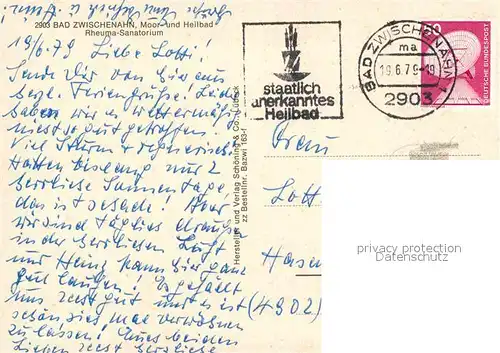 2903 BAD ZWISCHENAHN, Moor- und Heilbad
Rheuma-Sanatorium
19/6.79 Liebe Lotti!
Sende Dir von hier aus
herzl. Feriengrüße! Leider
haben wir es wettermäßig
nicht so gut getroffen.
Viel Sturm + regnerisch.
Hatten bislang nur 2
herrliche Sonnentage
das ist schade! Aber
wir sind täglich draußen
in der herrlichen Luft
und Heinz kann hier ganz
gut laufen! Es gefällt
uns recht gut und es ist
schön sich mal verwöhnen
zu lassen! Euch beiden
Lieben recht herzliche
Hersteller und Verlag Schöning & Co., Lübeck
zz Bestellnr. Bazwi 163-f
staatlich
anerkanntes
Heilbad
BAD ZWISCHENAHN 1
ma
19.6.79-19
2903
DEUTSCHE BUNDESPOST
Frau
Lott
Hasen
(4902)
privacy protection
Datenschutz